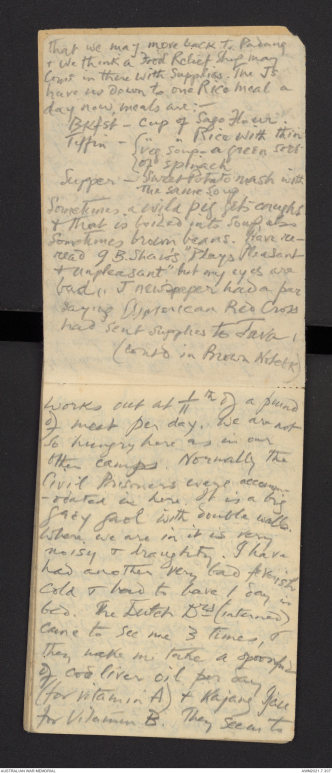 that we may move back to Padang
& we think a Food Relief Ship may
come in there with supplies. The Js
have us down to one Rice meal a
day now, meals are :-
Brkfst - cup of Sago Flour.
Tiffin - " " " Rice with thin
veg soup - a green sort
of spinach
Supper - Sweet Potato mash with
the same soup
Sometimes a wild pig gets caught
& that is boiled into soup also
sometimes brown beans. Have re-
read G.B. Shaw's "Plays Pleasant
& Unpleasant" but my eyes are
bad. J newspaper had a par
saying American Red Cross
had sent supplies to Java.
(contd in Brown Notebk)
works out at 1/11 th of a pound
of meat per day. We are not
so hungry here as in our
other camps. Normally the
Civil Prisoners were accomm-
odated in here. It is a big
grey gaol with double walls.
Where we are in it is very
noisy & draughty. I have
had another very bad feverish
cold & had to have 1 day in
bed. The Dutch Drs (interned)
came to see me 3 times, &
they make me take a spoonful
of cod liver oil per day
(for Vitamin A) & Kajang Idjau
for Vitamin B. They seem to
AUSTRALIAN WAR MEMORIAL